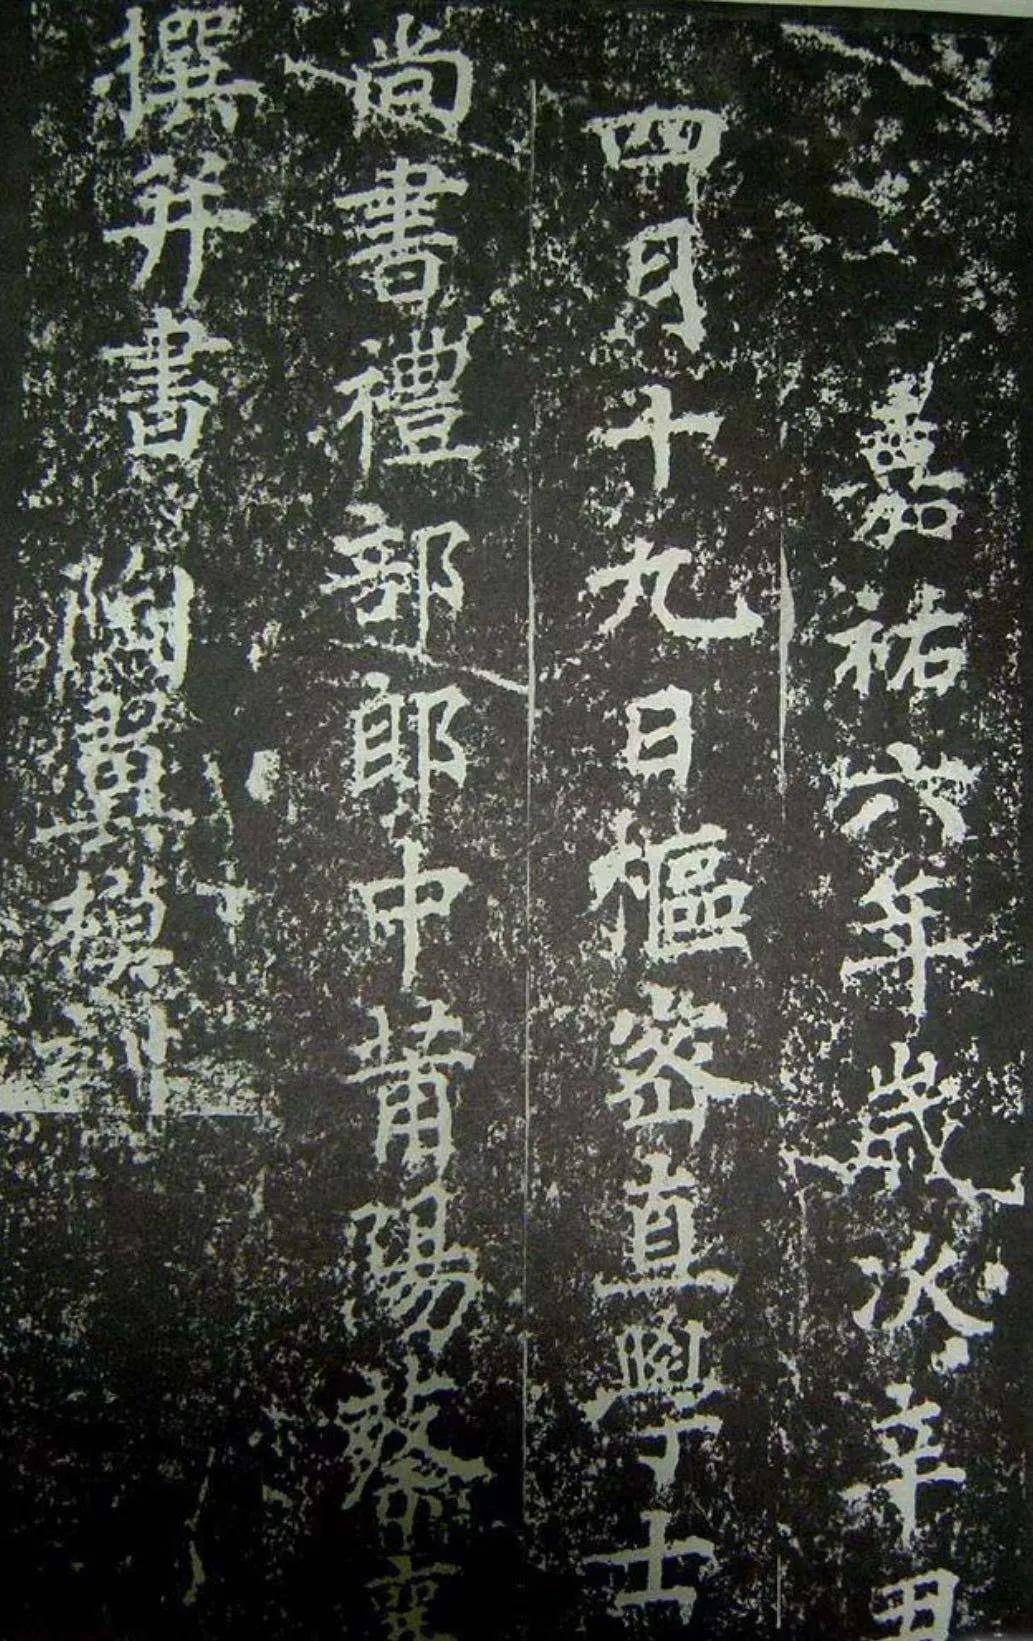 嘉祐六年歲次辛丑
四月十九日樞密直學士
尚書禮部郎中莆陽蔡襄
撰并書 陶翼模刊